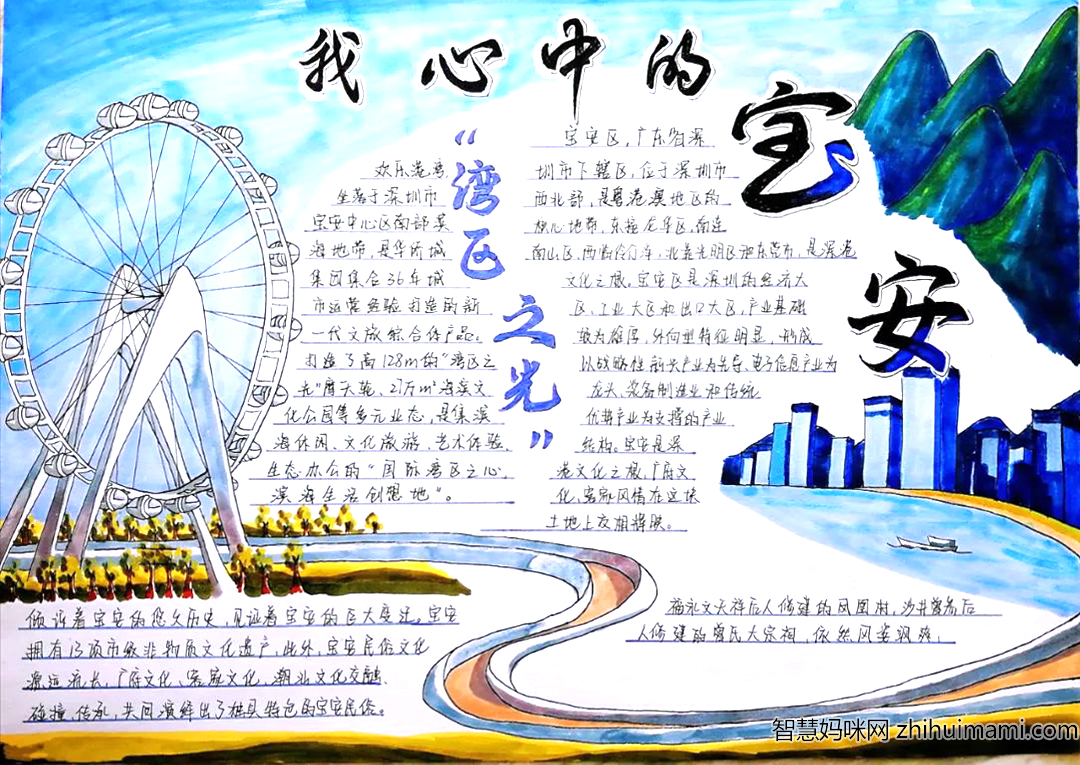 我心中的
宝安
“湾区之光”
欢乐港湾
坐落于深圳市
宝安中心区南部滨
海地带,是华侨城
集团集合36年城
市运营经验打造的新
一代文旅综合体产品。
打造了高128m的“湾区之
光”摩天轮、27万m²海滨文
化公园等多元业态,是集滨
海休闲、文化旅游、艺术体验、
生态办公的“国际湾区之心,
滨海生活创想地”。
宝安区,广东省深
圳市下辖区,位于深圳市
西北部,是粤港澳地区的
核心地带,东接龙华区,南连
南山区,西临伶仃洋,北靠光明区和东莞市,是深港
文化之根。宝安区是深圳的经济大
区、工业大区和出口大区,产业基础
较为雄厚,外向型特征明显,形成
以战略性新兴产业为先导、电子信息产业为
龙头、装备制造业和传统
优势产业为支撑的产业
结构。宝安是深
港文化之根,广府文
化、客家风情在这块
土地上交相辉映。
福永文天祥后人修建的凤凰村,沙井曾氏后
人修建的曾氏大宗祠,依然风姿飒爽,
倾诉着宝安的悠久历史,见证着宝安的巨大变迁。宝安
拥有13项市级非物质文化遗产,此外,宝安民俗文化
源远流长,广府文化、客家文化、潮汕文化交融、
碰撞、传承,共同演绎出了极具特色的宝安民俗。
智慧妈咪网 zhihuimami.com